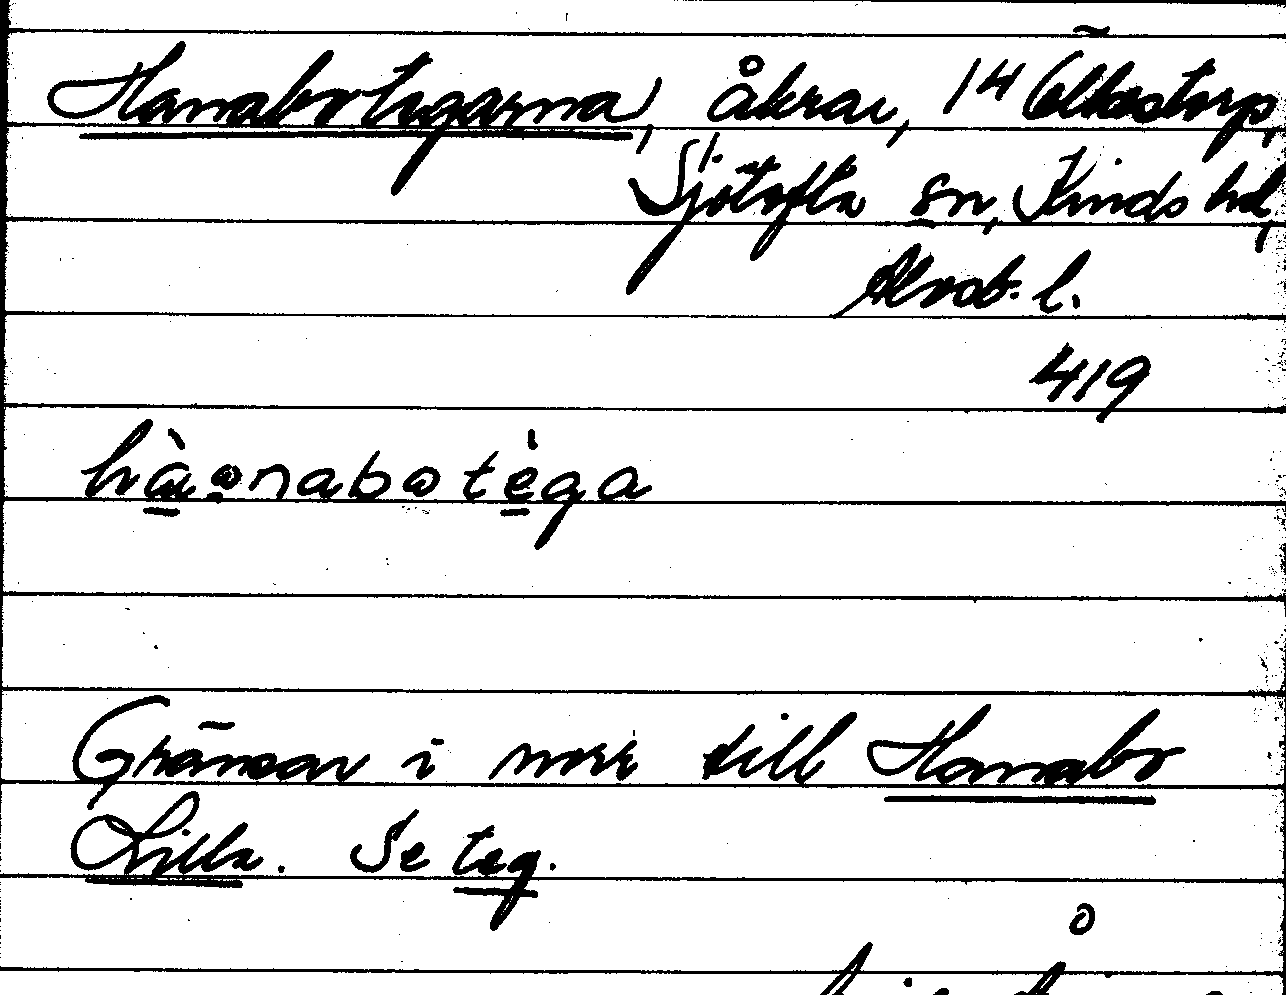 Hanabotegarna, åkrar, 14 Ölkastorp,
Sjötofta sn, Kinds hd,
Älvsb. l.
419
Gränsar i norr till Hanabo
Lilla. Se teg.